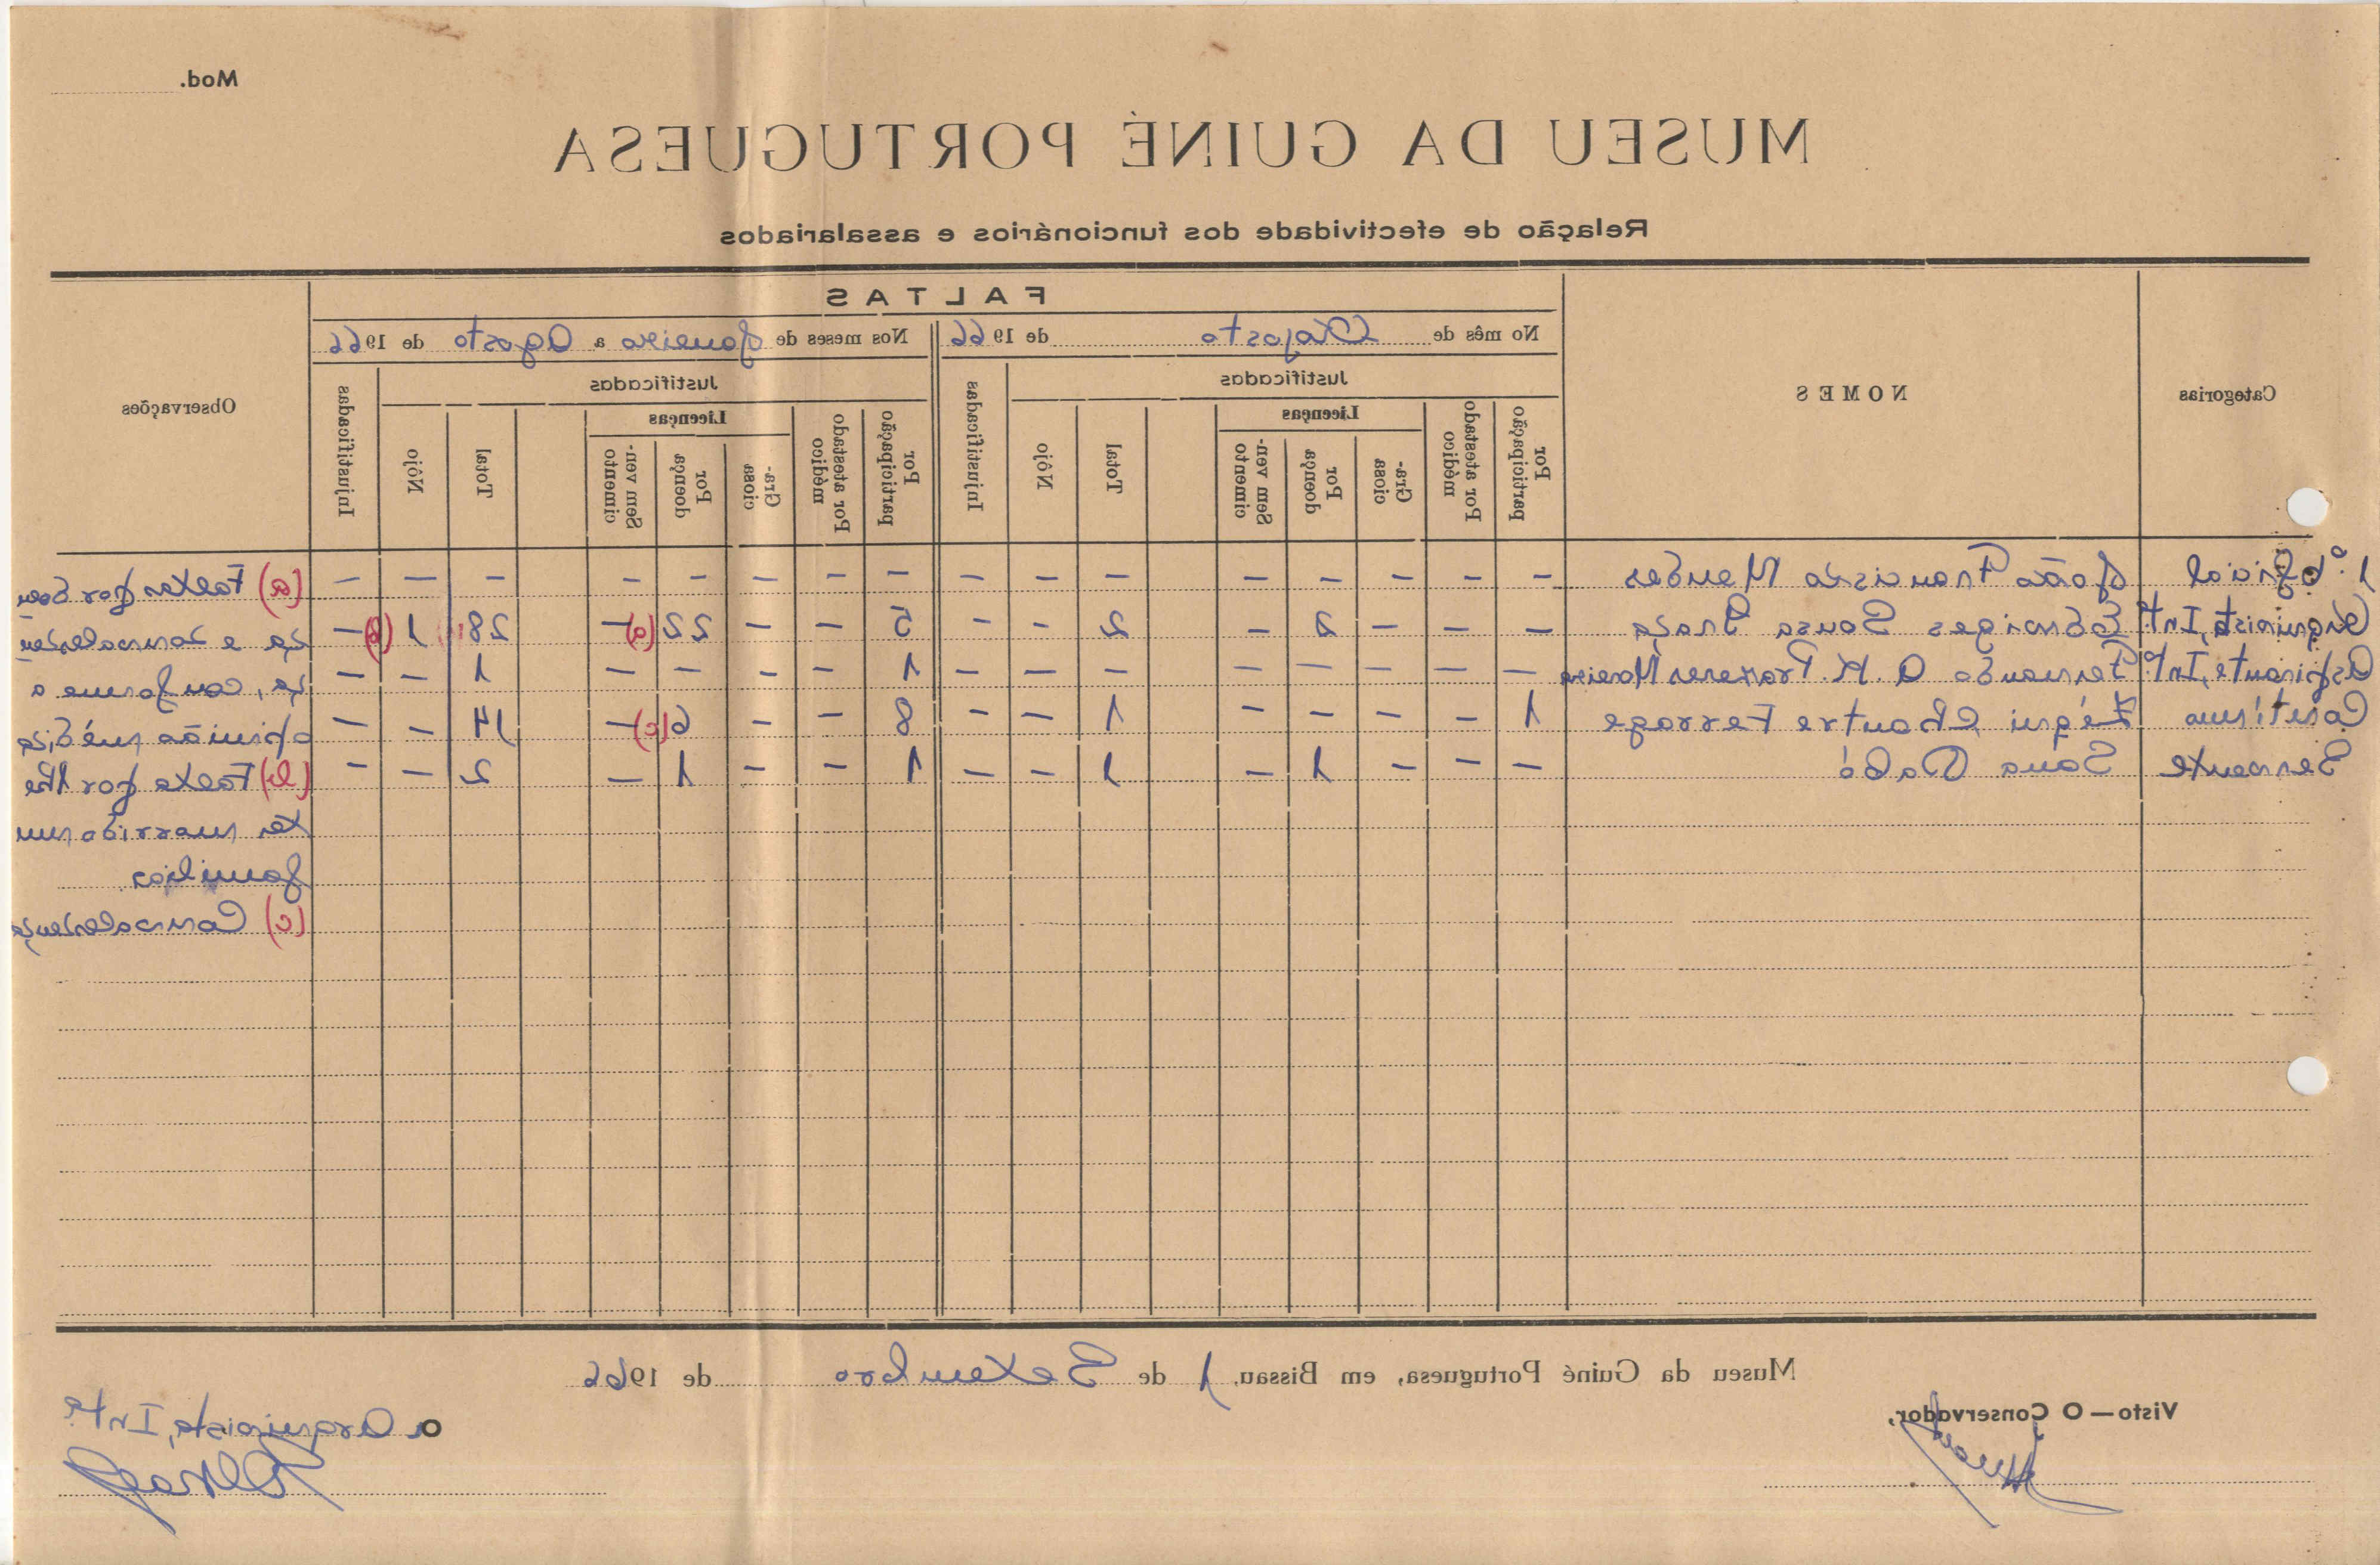 Mod.
MUSEU DA GUINÉ PORTUGUESA
Relação de efectividade dos funcionários e assalariados
Categorias
NOMES
FALTAS
No mês de Agosto de 1966
Nos meses de Janeiro a Agosto de 1966
Observações
Justificadas
Por participação
Por atestado médico
Licenças
Graciosa
Por doença
Sem vencimento
Total
Nôjo
Injustificadas
Justificadas
Por participação
Por atestado médico
Licenças
Graciosa
Por doença
Sem vencimento
Total
Nôjo
Injustificadas
1.º Oficial João Francisco Mendes — — — — — — — — — — — — — — — —
Arquivista, Intº Edwiges Sousa Graça — — — 2 — 2 — — 5 — — 22 (a) — 28 1 (b) —
Aspirante, Intº Fernando A. K. Maria — — — — — — — — 1 — — — — 1 — —
Contínuo Zéqui Chantre Ferrage 1 — — — — 1 — — 8 — — 6 (c) — 14 — —
Servente Sana Dabó — — — 1 — 1 — — 1 — — 1 — 2 — —
(a) Faltas por doen
ça e convalescen
ça, conforme a
opinião médica
(b) Falta por lhe
ter morrido um
familiar
(c) Convalescença
Museu da Guiné Portuguesa, em Bissau, 1 de Setembro de 1966
Visto — O Conservador,
O Arquivista, Intº